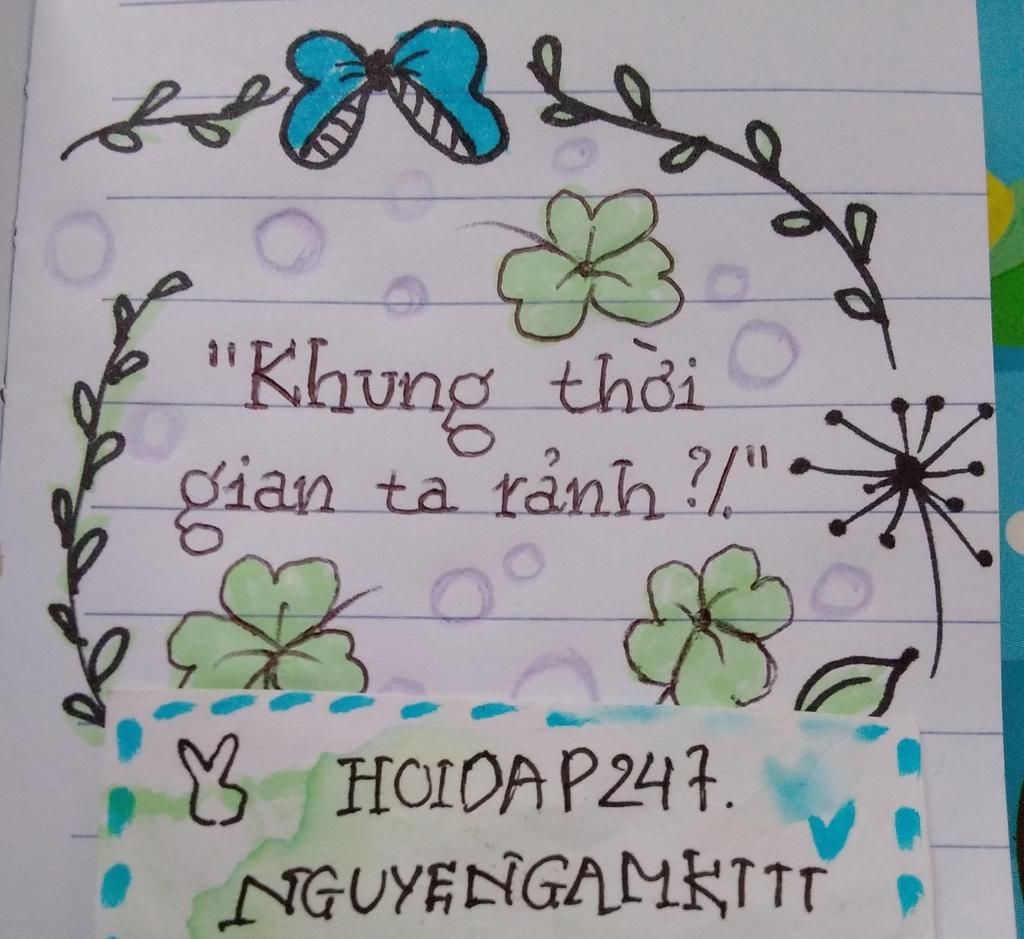 "Khung thời
gian ta rảnh?/."
HOIDAP247.
NGUYENGAMKTTT